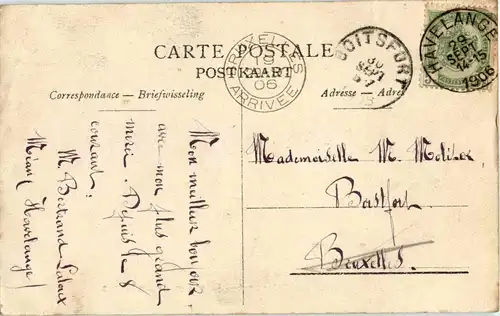 CARTE POSTALE
POSTKAART
Correspondance — Briefwisseling
Adresse - Adres
BRUXELLES
19
06
ARRIVEE
BOITSFORT
30
SEPT
HAVELANGE
SEPT
14-15
1906
Mon meilleur bonjour
avec mon plus grand
merci. Depuis le 8
courant.
M. Bertrand
Miécret, Havelange
Mademoiselle M. Molitor
Boitsfort
Bruxelles.